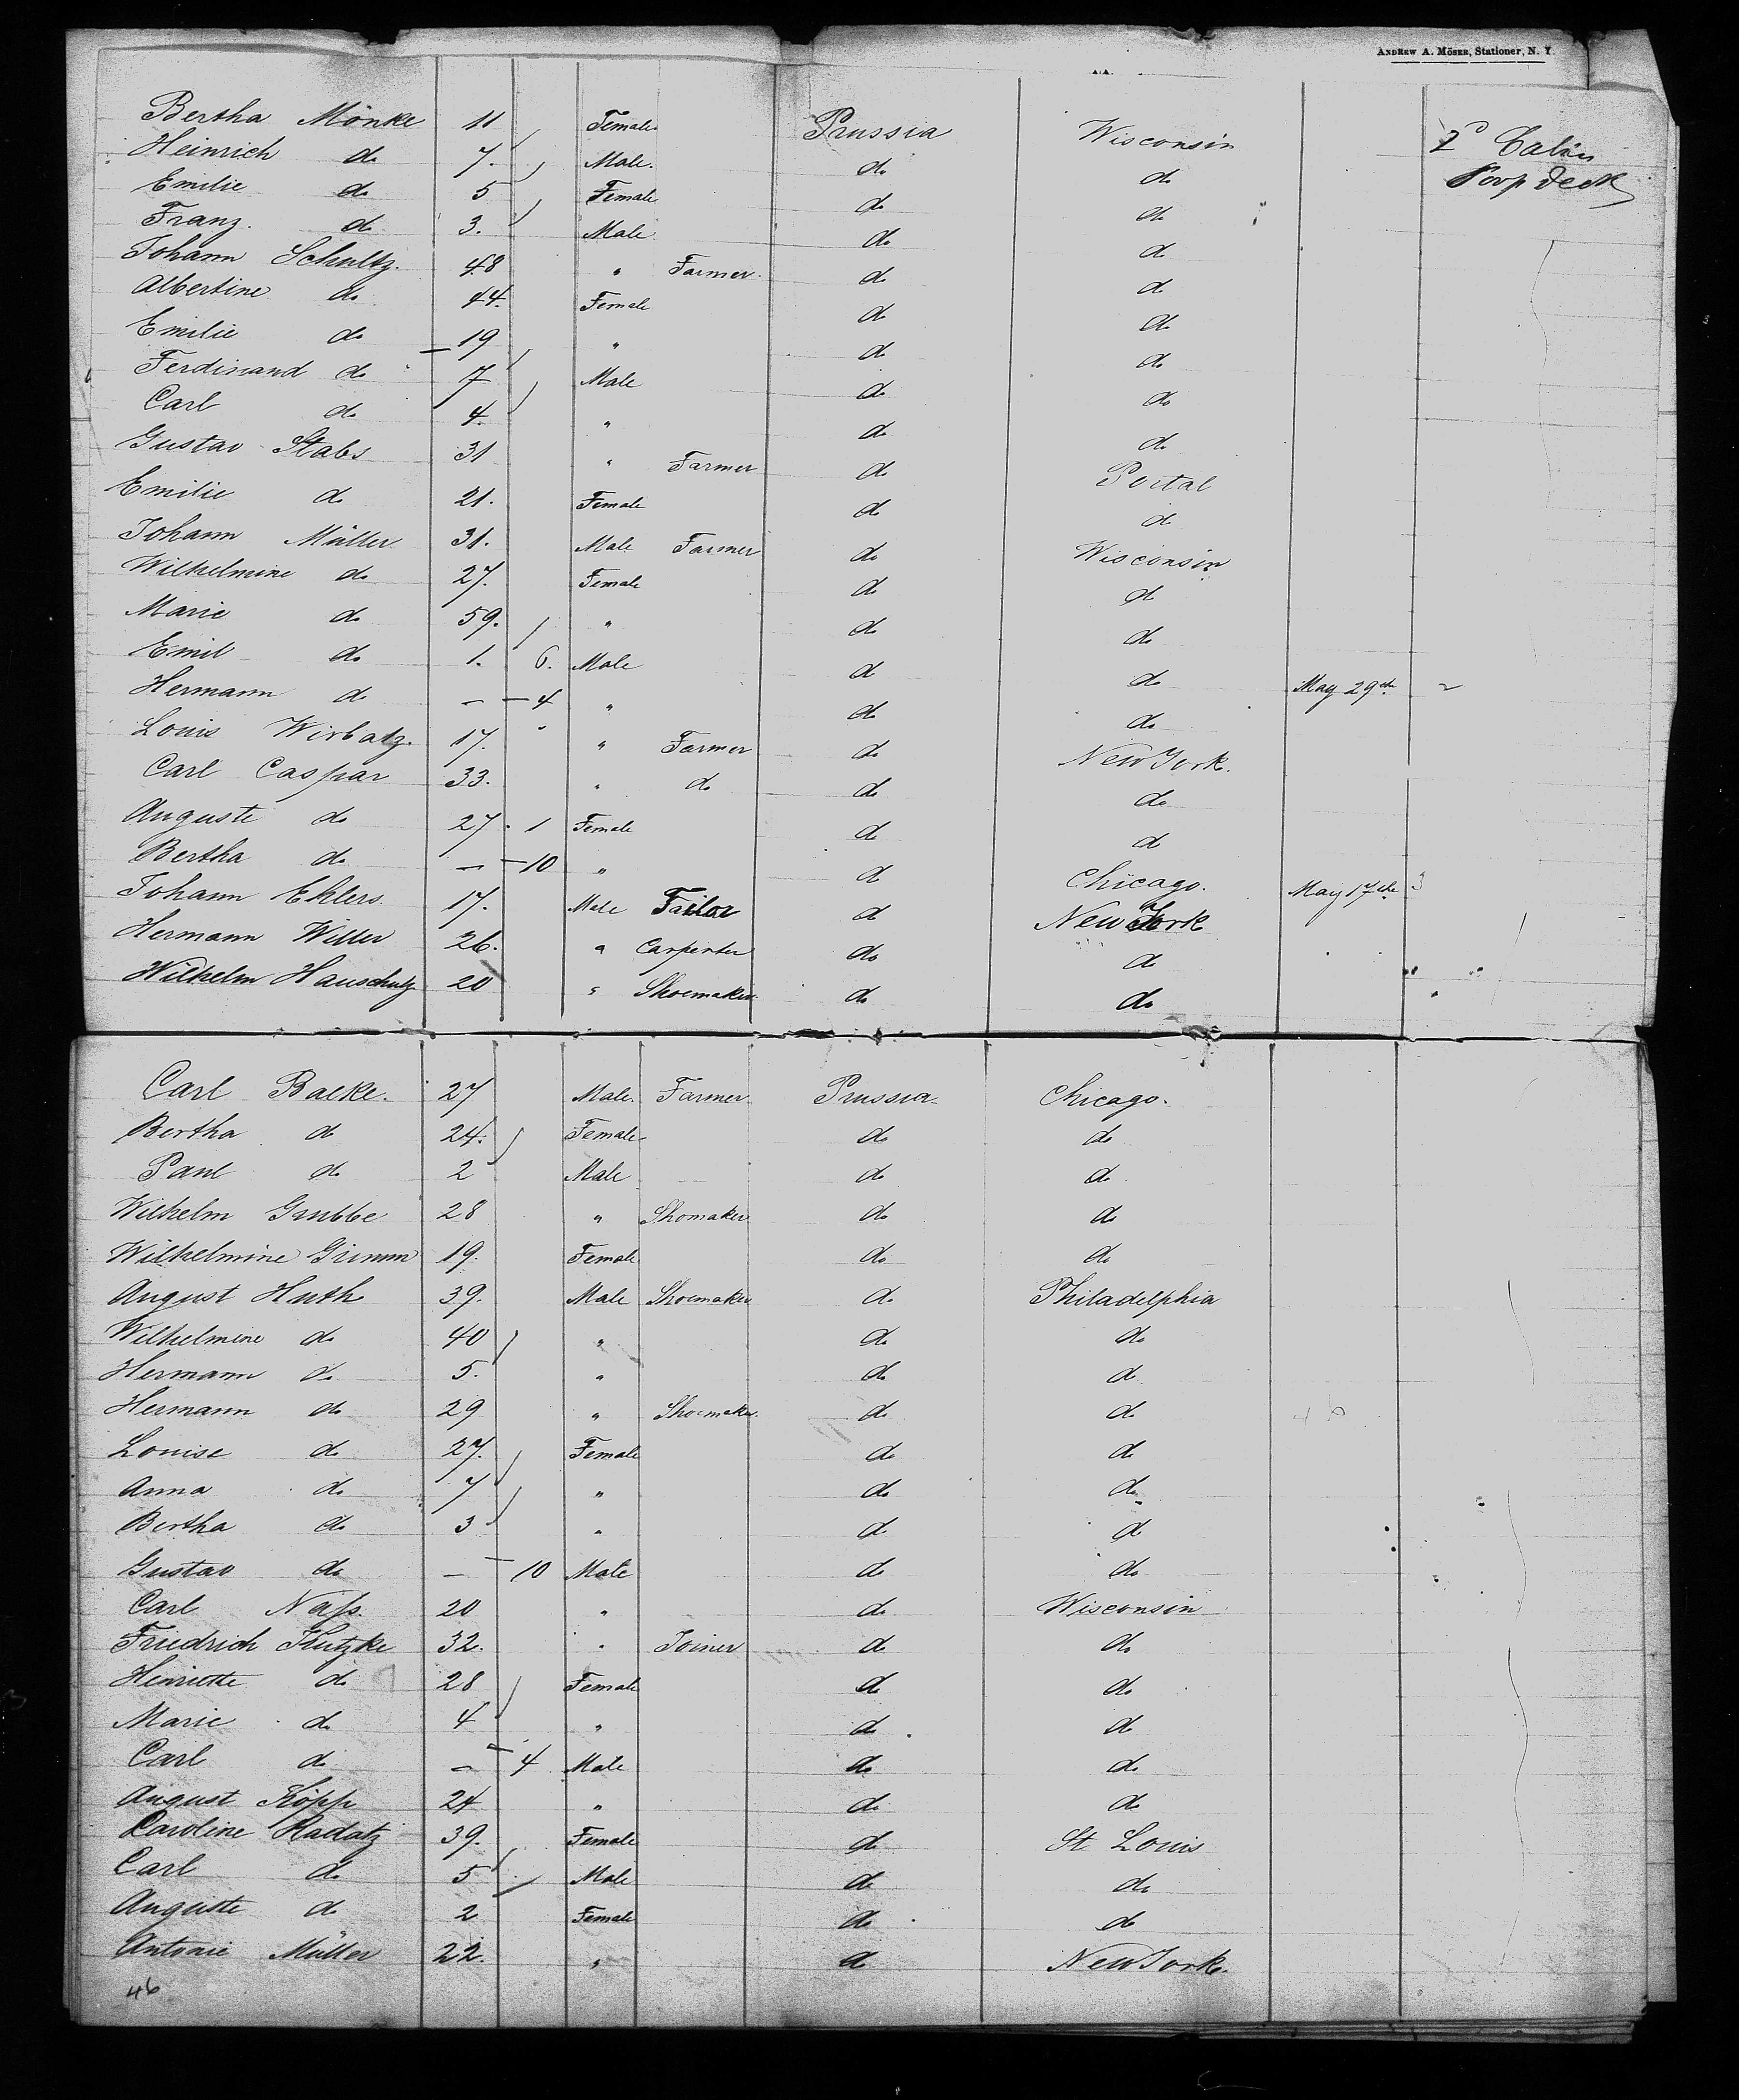 ANDREW A. MÖSER, Stationer, N. Y.
Bertha Mönke 11 Female Prussia Wisconsin 2d Cabin
Heinrich do 7. Male. do do Poop deck
Emilie do 5 Female do do
Franz. do 3. Male do do
Johann Schultz. 48 " Farmer. do do
Albertine do 44. Female do do
Emilie do 19 " do do
Ferdinand do 7 Male do do
Carl do 4. " do do
Gustav Stabs 31 " Farmer do Portal
Emilie do 21. Female do do
Johann Müller 31. Male Farmer do Wisconsin
Wilhelmine do 27. Female do do
Marie do 59. " do do
Emil do 1. 6. Male do do May 29th
Hermann do — 4 " do do
Louis Wirbatz. 17. " Farmer do New York.
Carl Caspar 33. " do do do
Auguste do 27. 1 Female do do
Bertha do — 10 " do Chicago. May 17th
Johann Ehlers. 17. Male Tailor do New York
Hermann Willer 26. " Carpenter do do
Wilhelm Hauschutz 20 " Shoemaker do do
Carl Backe. 27 Male. Farmer. Prussia Chicago.
Bertha do 24. Female do do
Paul do 2 Male do do
Wilhelm Grubbe 28 " Shomaker do do
Wilhelmine Grimm 19. Female do do
August Huth 39. Male Shoemaker do Philadelphia
Wilhelmine do 40 " do do
Hermann do 5. " do do
Hermann do 29 " Shoemaker. do do
Louise do 27. Female do do
Anna do 7 " do do
Bertha do 3 " do do
Gustav do — 10 Male do do
Carl Naß. 20 " do Wisconsin
Friedrich Klutzke 32. " Joiner do do
Henriette do 28 Female do do
Marie do 4 " do do
Carl do — 4 Male do do
August Köpp 24 " do do
Caroline Radatz 39. Female do St Louis
Carl do 5 Male do do
Auguste do 2 Female do do
Antonie Müller 22. " do New York.
46